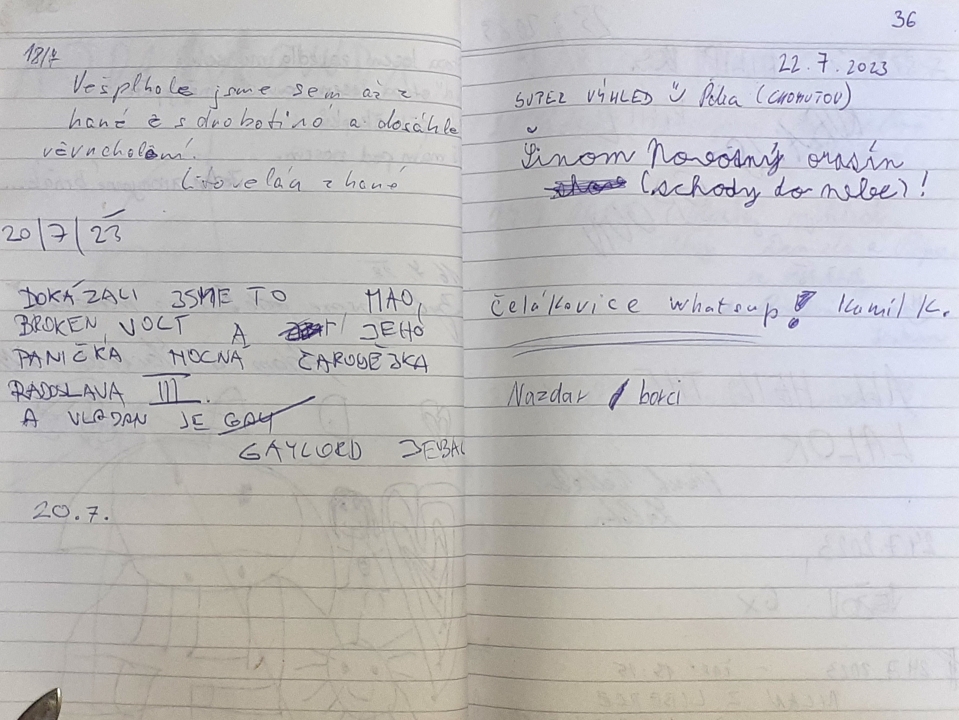 18/7
Vešplhole jsme sem až z
hané č s drobotinó a dosáhle
věvrcholéní.
Litovelág z hané
20/7/23
DOKÁZALI JSME TO MAO,
BROKEN, VOLT A JEHO
PANIČKA MOCNÁ ČARODĚJKA
RADOSLAVA III.
A VLADAN JE GAY
GAYLORD JEBAL
20.7.
36
22.7.2023
SUPER VÝHLED Ü Péťa (CHOMUTOV)
(schody do nebe)!
Čelákovice whatsup! Kamil K.
Nazdar borci